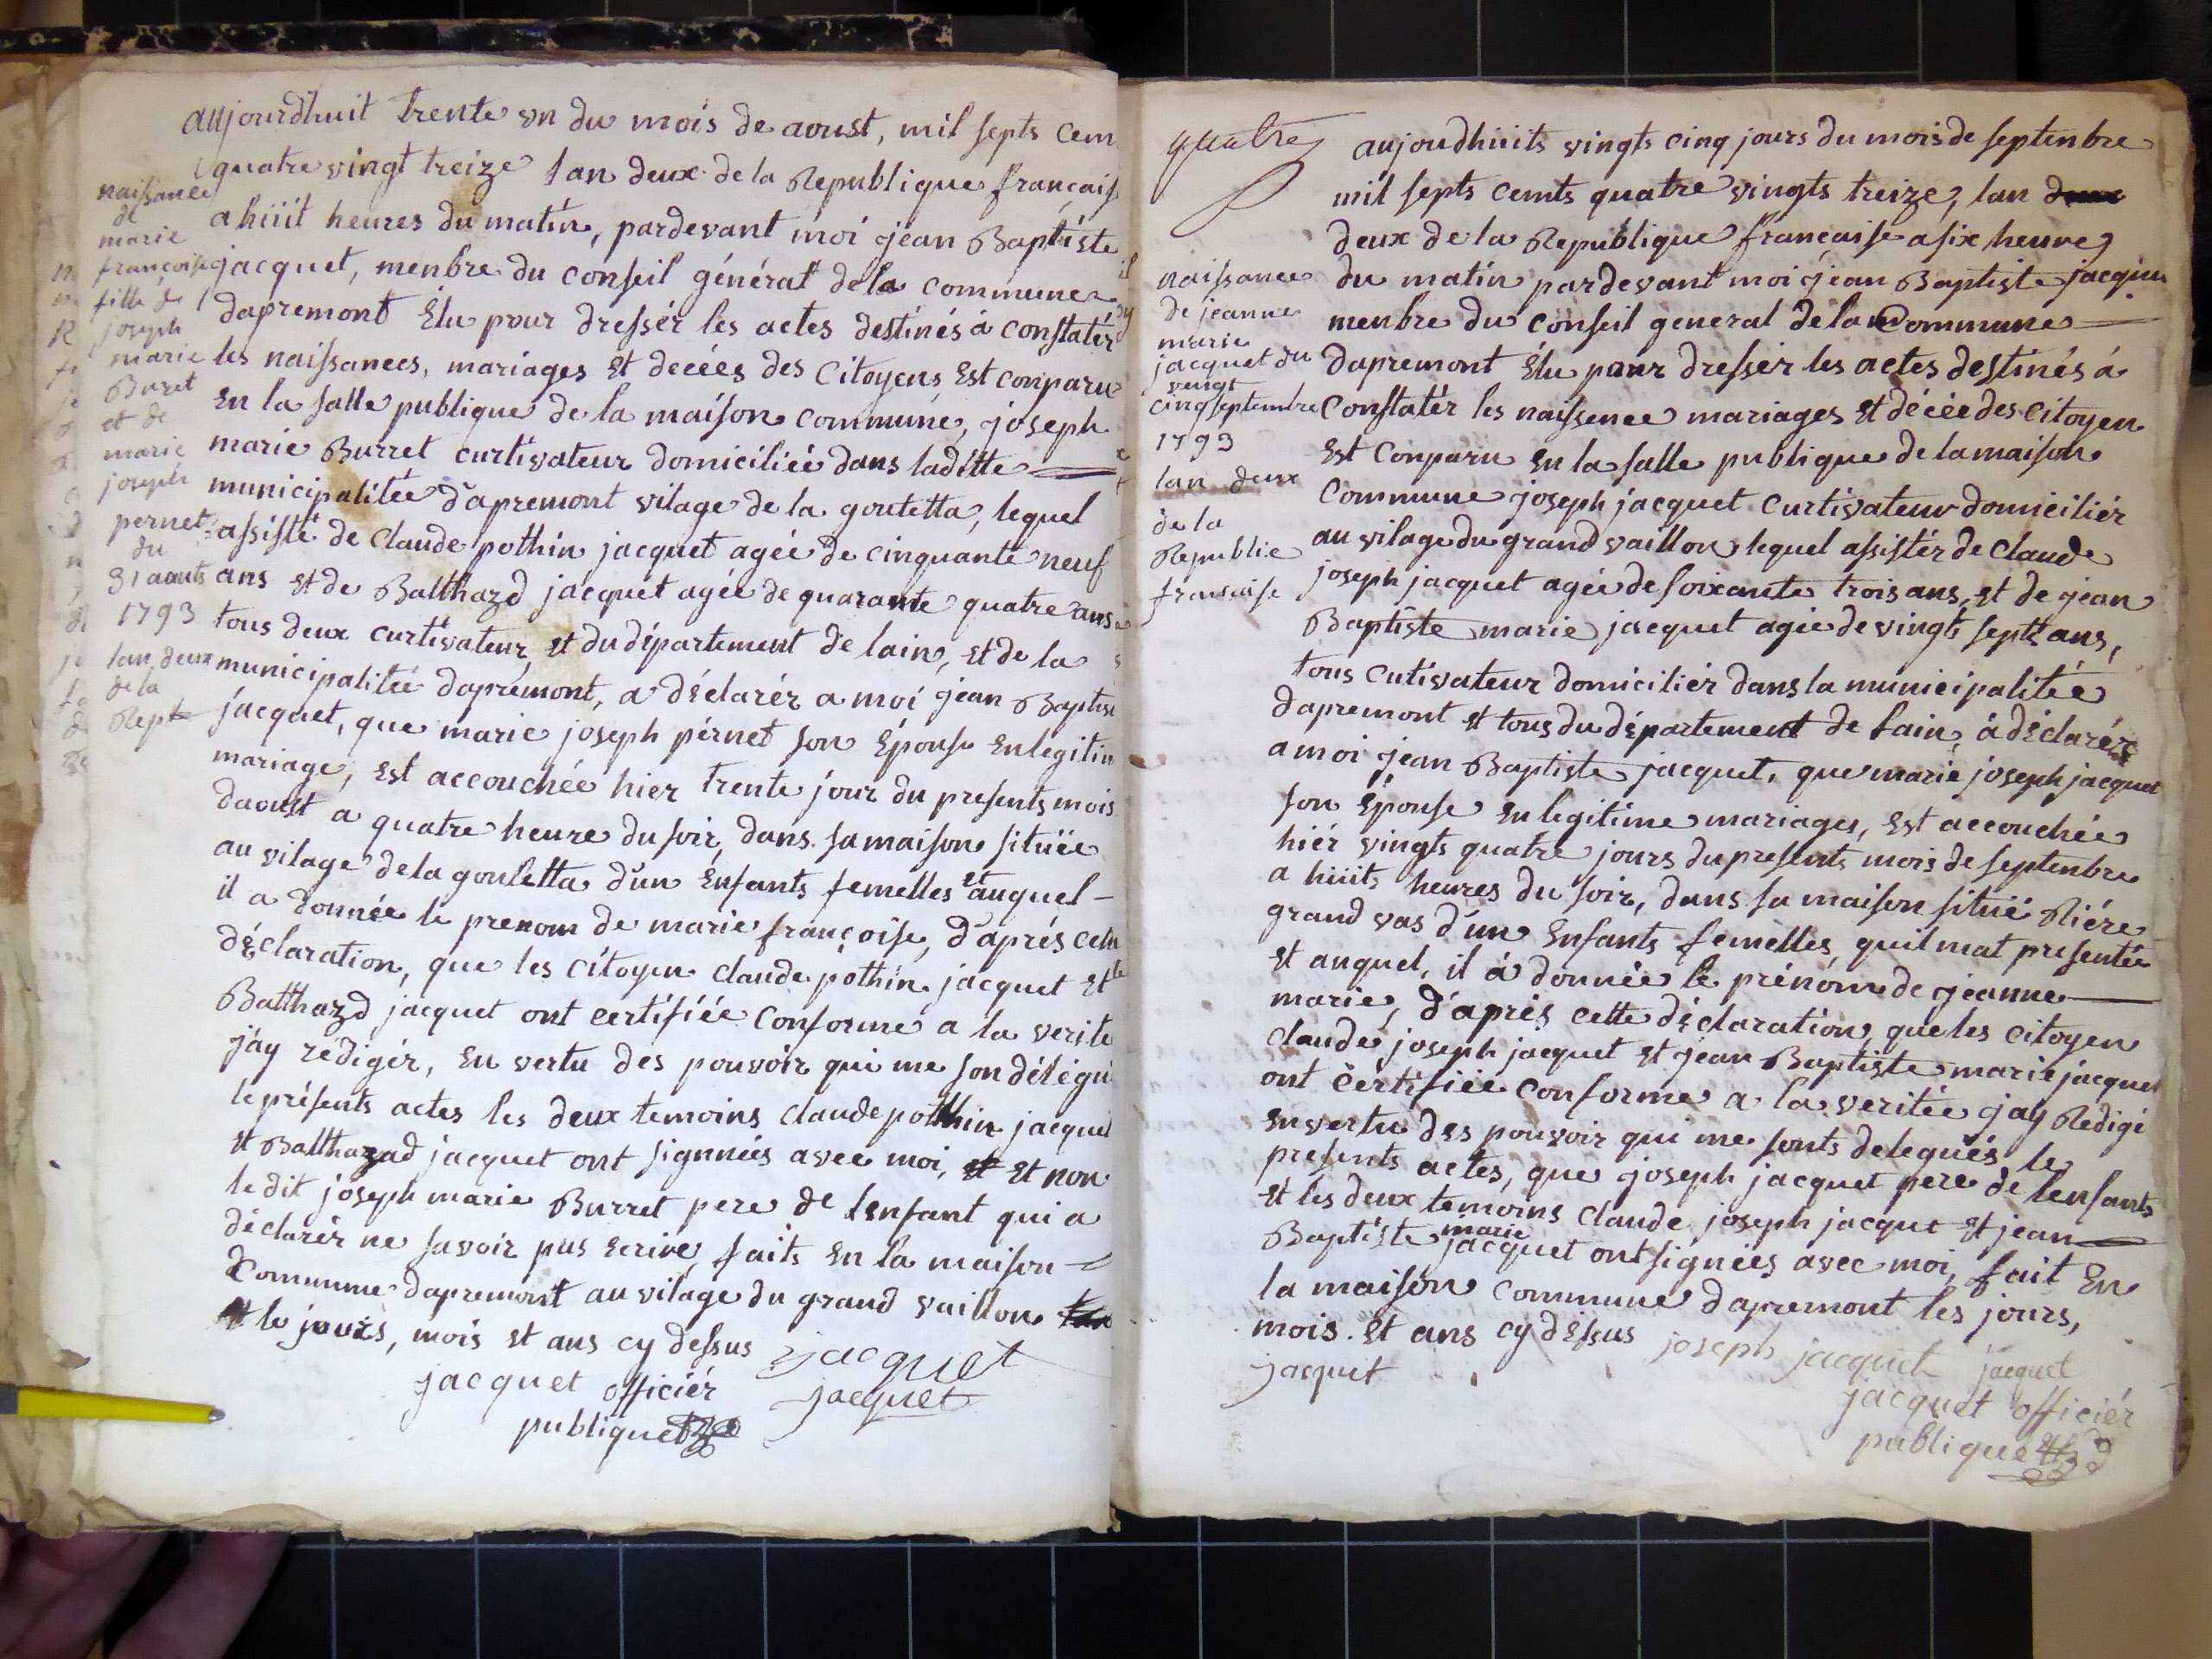 naissance
de
marie
françoise
fille de
joseph
marie
Buret
et de
marie
joseph
pernet
du
31 aouts
1793
lan deux
de la
Rept
aujourdhuit trente un du mois de aoust, mil septs cem
quatre vingt treize lan deux de la Republique français
a hiiit heures du matin, pardevant moi jean Baptiste
jacquet, menbre du conseil général de la commune
dapremont Élu pour dressér les actes destinés á constatér
les naissances, mariages Et decéés des Citoyens Est conparu
En la salle publique de la maison commune, joseph
marie Burret curtivateur domiciliéé dans ladítte
municipalitéé d'apremont vilage de la goutetta, lequel
assisté de Claude pothin jacquet agéé de cinquante neuf
ans et de Balthazd jacquet agéé de quarante quatre ans
tous deux curtivateur, Et du département de lain, Et de la
municipalitéé dapremont, a déclarér a moi jean Baptis
jacquet, que marie joseph pérnet son Épouse En legitim
mariage, Est accouchéé hier trente jour du presents mois
daoust a quatre heure du soir, dans sa maison sitüée
au vilage de la gouletta d'un Enfants femelles et auquel
il a donnée le prenom de marie françoise, d'aprés cela
déclaration, que les citoyen claude pothin jacquet Et le
Balthazd jacquet ont certifiéé conforme a la verite
j'ay rédigér, En vertu des pouvoir qui me son délégu
le présents actes les deux temoins claude pothin jacquet
Et Balthazad jacquet ont signnéés avec moi, et Et non
le dit joseph marie Burret pere de lenfant qui a
déclarér ne savoir pas Ecrire, faits En la maison
commune dapremont au vilage du grand vaillon
et le jours, mois et ans cy dessus
jacquet
jacquet officiér
jacquet
publique
quatre
naissance
de jeanne
marie
jacquet du
vingt
cinq septembre
1793
lan deux
de la
Republic
francaise
aujoudhiiits vingts cinq jours du mois de septenbre
mil septs cemts quatre vingts treize, lan deux
deux de la Republique francaise a six heures
du matin pardevant moi jean Baptiste jacquet
menbre du conseil general de la Commune
dapremont Élu pour dressér les actes destinés á
constatér les naissence mariages et décéé des citoyen
Est Conparu En la salle publique de la maison
commune joseph jacquet curtivateur domiciliér
au vilage du grand vaillon lequel assistér de claude
joseph jacquet agéé de soixante trois ans, Et de jean
Baptiste marie jacquet agéé de vingt septs ans,
tous cutivateur domiciliér dans la municipalitéé
dapremont et tous du département de lain, á déclarér
a moi jean Baptiste jacquet, que marie joseph jacquet
son Épouse En legitime mariages, Est accouchéé
hiér vingts quatre jours du presents mois de septenbre
a hiiits heures du soir, dans sa maison situé Riére
grand vas d'un Enfants femelles, quil mat presentéé
et auquel, il á donnée le prénom de jeanne
marie, d'aprés cette déclaration, que les citoyen
claude joseph jacquet et jean Baptiste marie jacquet
ont certifiéé conforme a la veritéé jay Redigé
En vertu des pouvoir qui me sonts delegués, le
presents actes, que joseph jacquet pere de lenfants
Et les deux temoins claude joseph jacquet et jean
Baptiste marie jacquet ont signéés avec moi, fait En
la maison commune dapremont les jours,
mois. Et ans cy dessus
joseph jacquet jacquet
jacquet
jacquet officiér
publique